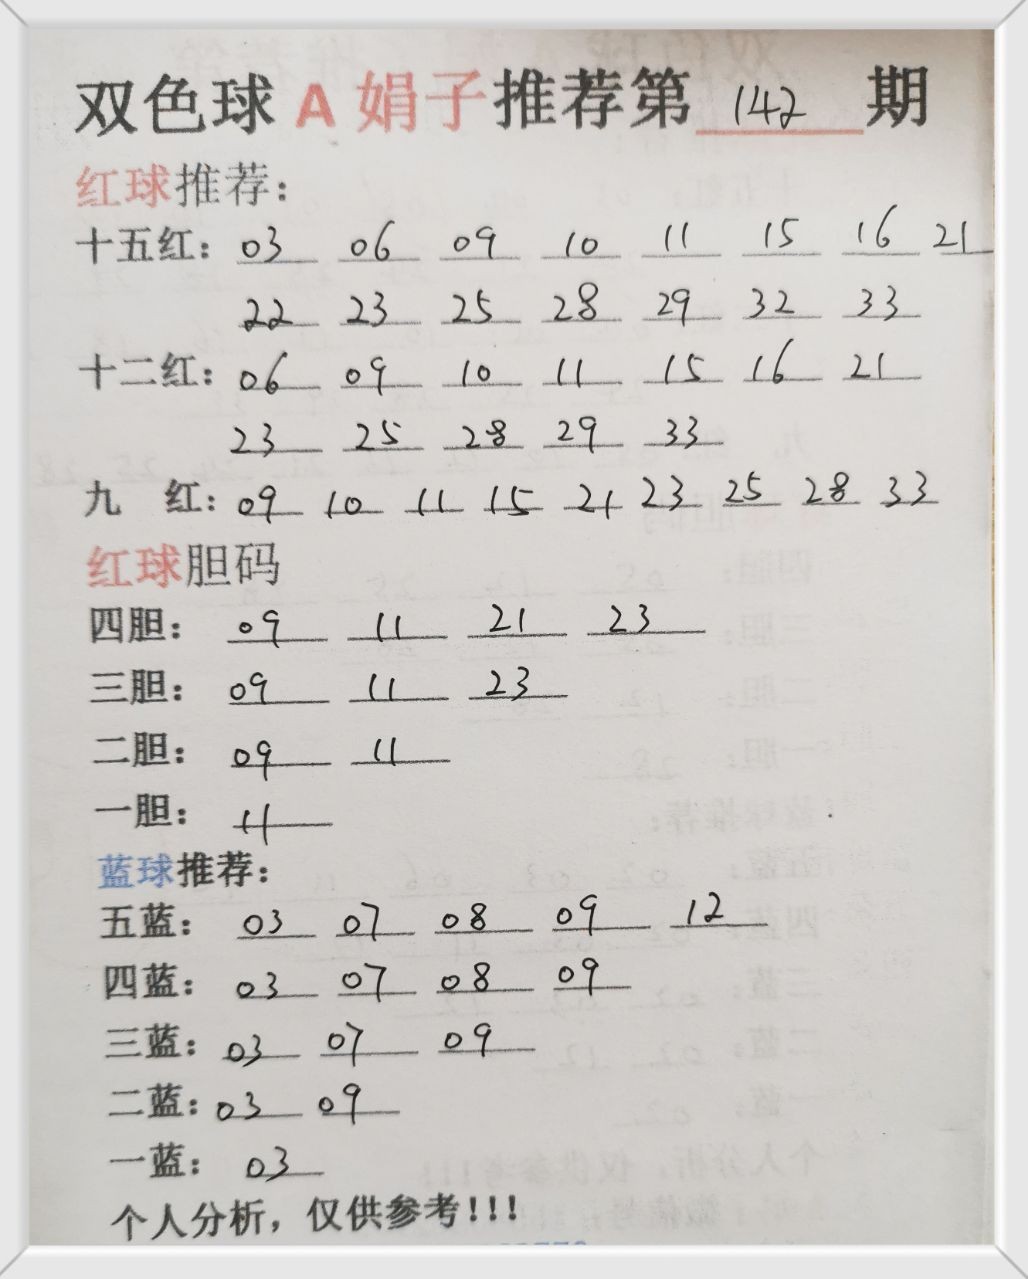 双色球 A 娟子推荐第 142 期
红球推荐：
十五红：03 06 09 10 11 15 16 21
22 23 25 28 29 32 33
十二红：06 09 10 11 15 16 21
23 25 28 29 33
九 红：09 10 11 15 21 23 25 28 33
红球胆码
四胆：09 11 21 23
三胆：09 11 23
二胆：09 11
一胆：11
蓝球推荐：
五蓝：03 07 08 09 12
四蓝：03 07 08 09
三蓝：03 07 09
二蓝：03 09
一蓝：03
个人分析，仅供参考!!!